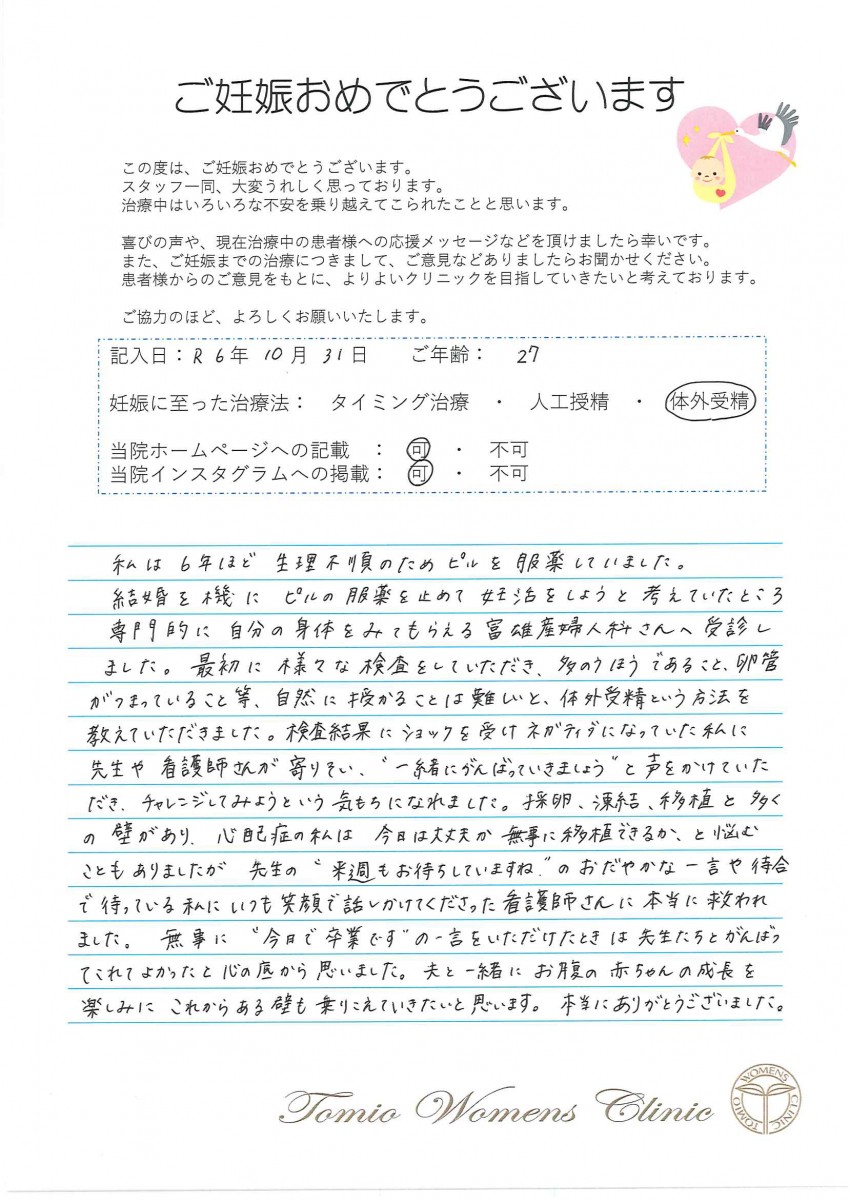 ご妊娠おめでとうございます
この度は、ご妊娠おめでとうございます。
スタッフ一同、大変うれしく思っております。
治療中はいろいろな不安を乗り越えてこられたことと思います。
喜びの声や、現在治療中の患者様への応援メッセージなどを頂けましたら幸いです。
また、ご妊娠までの治療につきまして、ご意見などありましたらお聞かせください。
患者様からのご意見をもとに、よりよいクリニックを目指していきたいと考えております。
ご協力のほど、よろしくお願いいたします。
記入日：R 6年 10月 31日 ご年齢： 27
妊娠に至った治療法： タイミング治療 ・ 人工授精 ・ 体外受精
当院ホームページへの記載 ： 可 ・ 不可
当院インスタグラムへの掲載： 可 ・ 不可
私は 6年ほど 生理不順のため ピルを 服薬していました。
結婚を機に ピルの服薬を止めて 妊活をしようと 考えていたところ
専門的に 自分の身体をみてもらえる 富雄産婦人科さんへ 受診し
ました。 最初に 様々な 検査をしていただき、多のうほうであること、卵管
がつまっていること等、自然に 授かることは難しいと、体外受精という方法を
教えていただきました。検査結果に ショックを受け ネガティブになっていた私に
先生や 看護師さんが 寄りそい、"一緒にがんばっていきましょう"と声をかけていた
だき、チャレンジしてみようという 気もちになれました。採卵、凍結、移植と 多く
の 壁があり、心配症の私は 今日は大丈夫か 無事に移植できるか、と悩む
こともありましたが 先生の "来週もお待ちしていますね。"の おだやかな 一言や 待合
で 待っている 私に いつも 笑顔で 話しかけてくださった 看護師さんに 本当に 救われ
ました。 無事に "今日で 卒業です"の一言をいただけたときは 先生たちとがんばっ
てこれてよかったと 心の底から 思いました。 夫と 一緒に お腹の 赤ちゃんの 成長を
楽しみに これからある 壁も 乗りこえていきたいと 思います。 本当にありがとうございました。
Tomio Womens Clinic
WOMENS CLINIC TOMIO